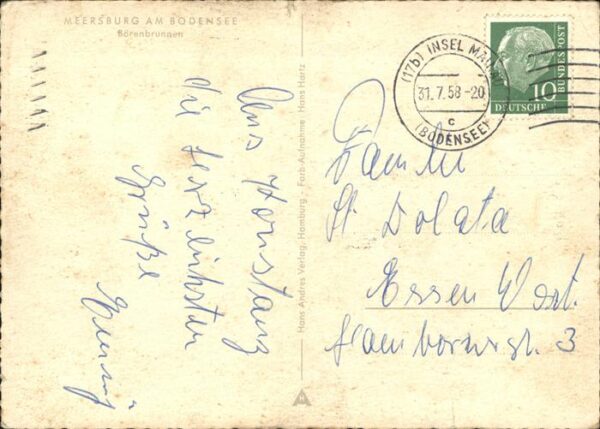 MEERSBURG AM BODENSEE
Bärenbrunnen
Aus Konstanz
die herzlichsten
Grüße
Hans Andres Verlag, Hamburg, Farb-Aufnahme: Hans Hartz
(17b) INSEL MAINAU
31.7.58-20
c
(BODENSEE)
10
DEUTSCHE
BUNDESPOST
Familie
St. Dolata
Essen West.
3